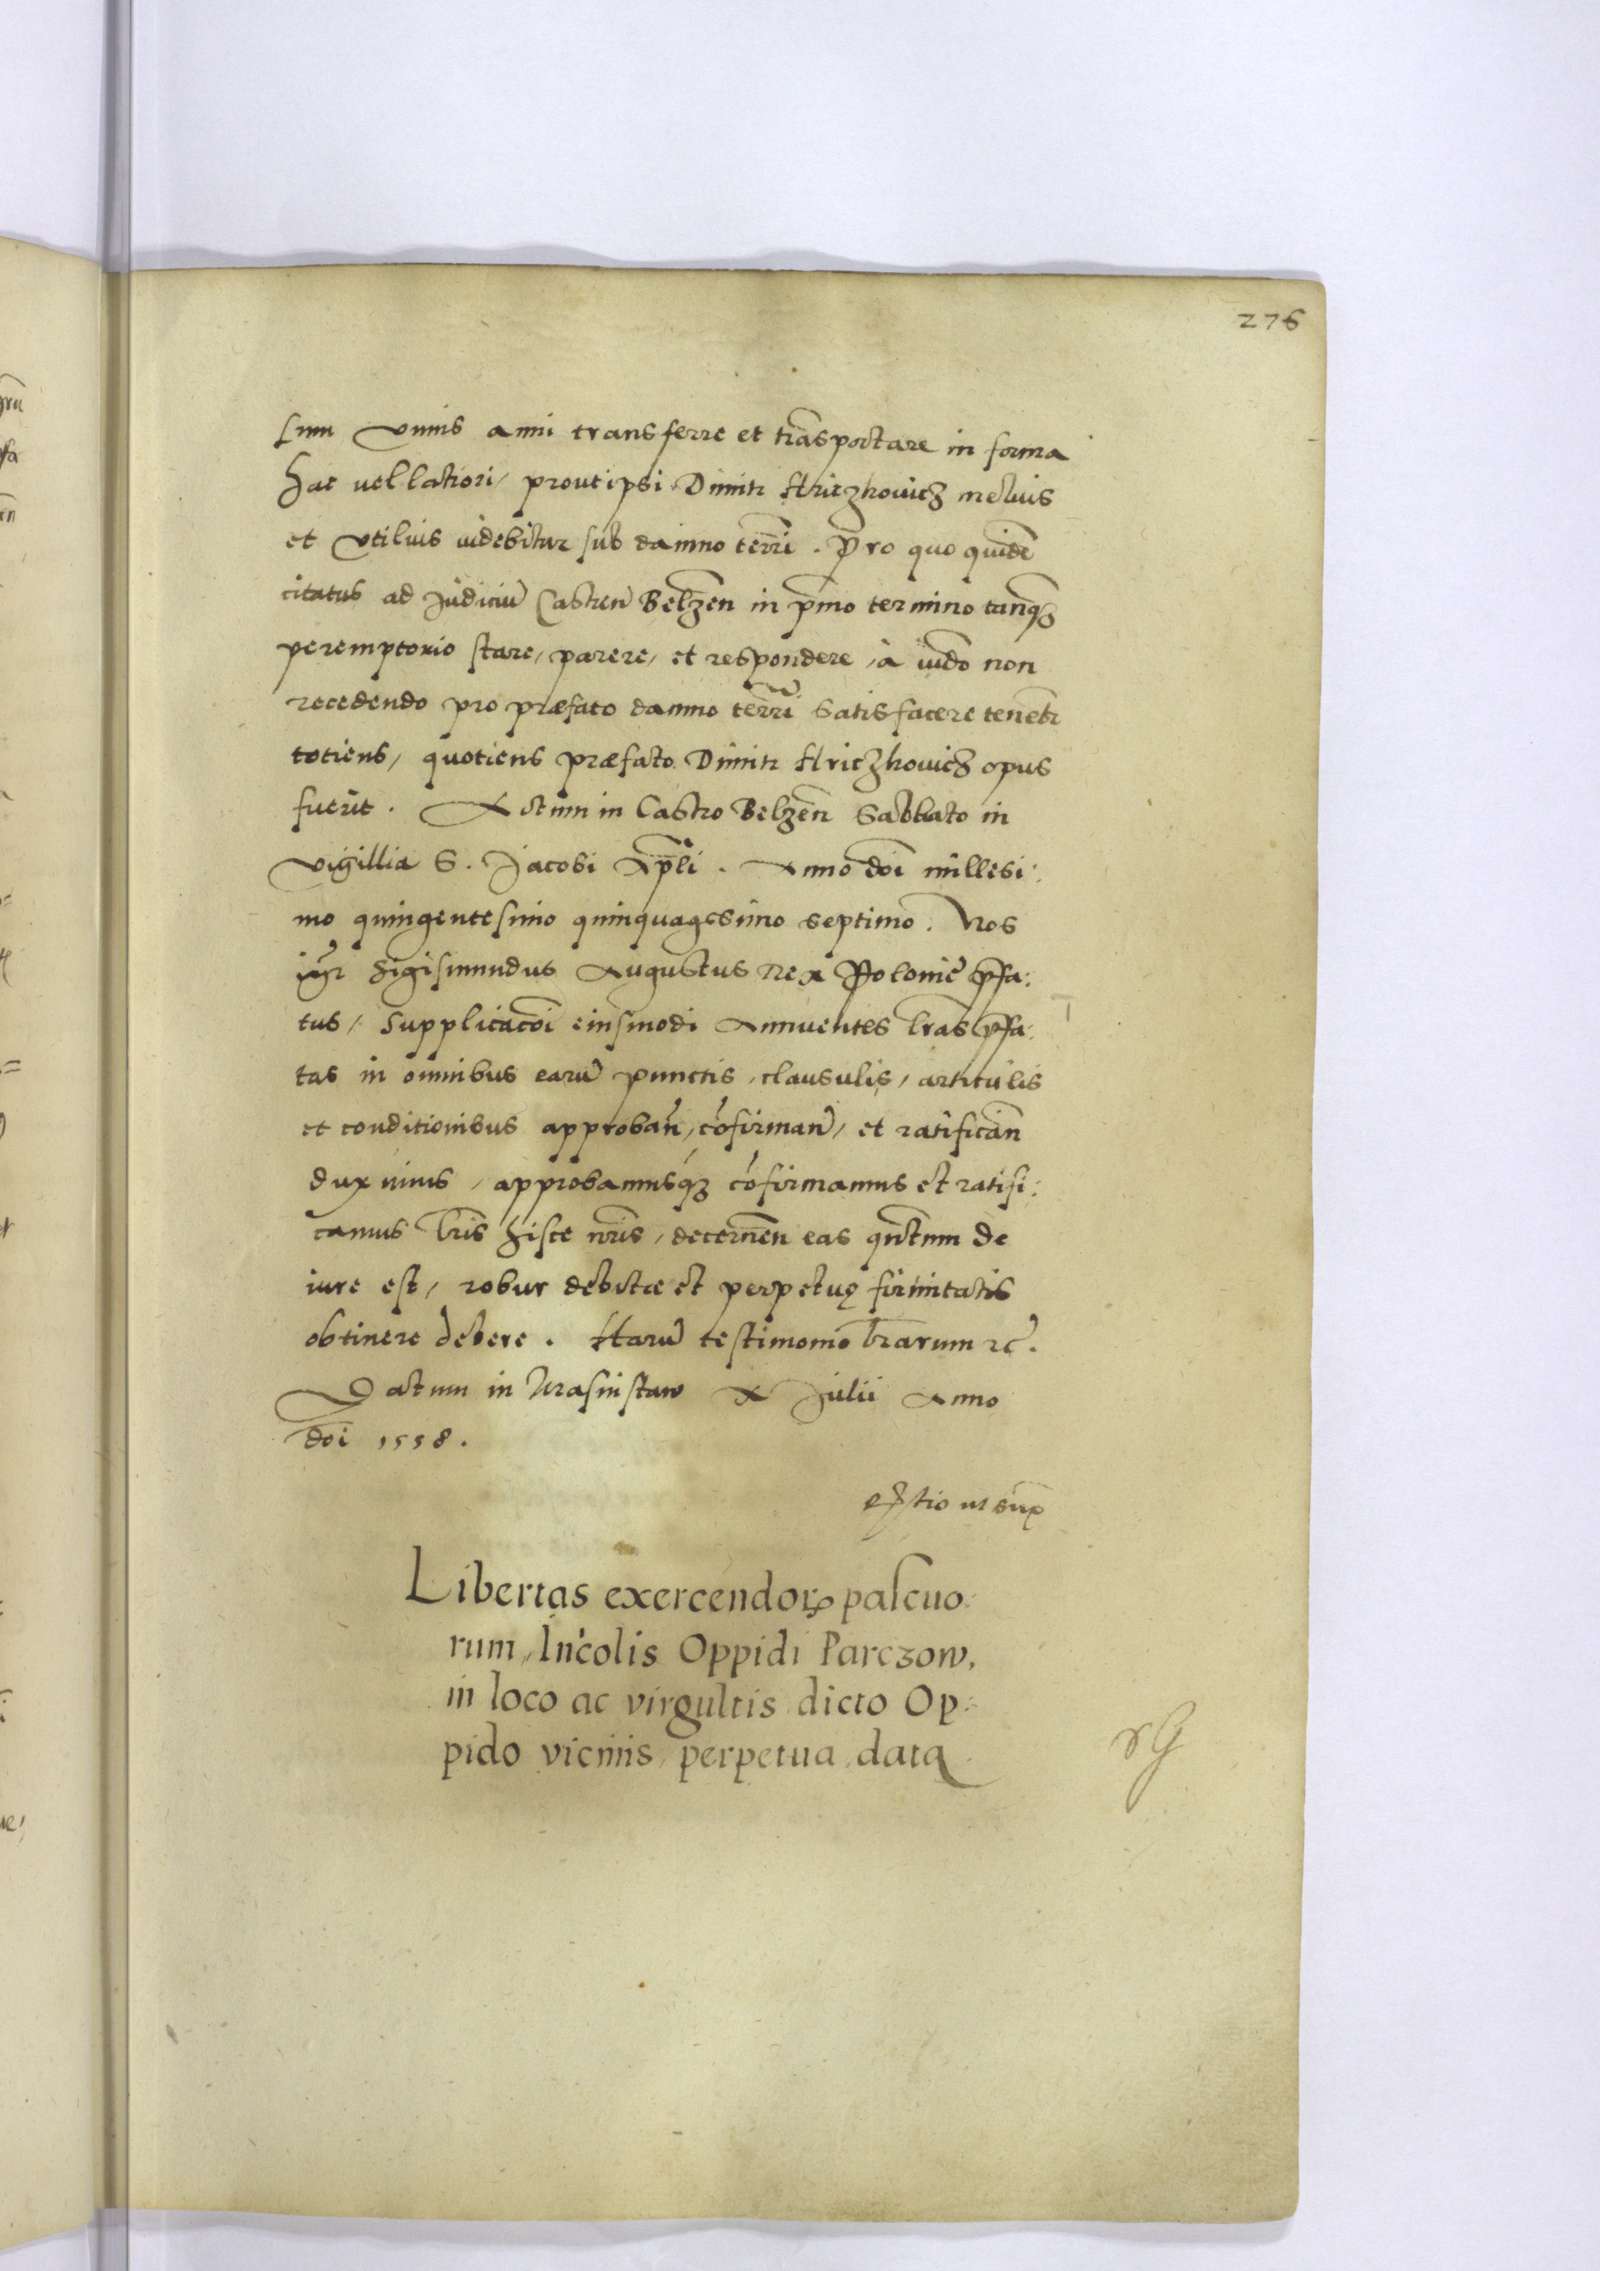 276
sum vnius anni transferre et trāsportare in forma
hac vel latiori, prout ipsi Dimitr Hriczkowicz melius
et vtilius uidebitur sub damno terrī. Pro quo quidē
citatus ad Judiciū Castren̄ Belzen̄ in p̄mo termino tanq̄ʒ
peremptorio stare, parere, et respondere, à iudō non
recedendo pro præfato damno terrī satisfacere tenebr̄
totiens, quotiens præfato Dimitr Hriczkowicz opus
fuerit. Actum in Castro Belzen̄ Sabbato in
vigillia S. Jacobi Ap̄li. Anno dōi millesi:
mo quingentesimo quinquagesimo septimo. Nos
igr̄ Sigismundus Augustus Rex Poloniē p̄fa:
tus, supplicacōi eiusmodi Annuentes lr̄as p̄fa:
tas in omnibus earū punctis, clausulis, articulis
et conditionibus approban̄, cōfirman̄, et ratifican̄
duximus, approbamusqʒ cōfirmamus et ratifi:
camus lr̄is hisce nr̄is, decernen̄ eas qn̄tum de
iure est, robur debitæ et perpetuę firmitatis
obtinere debere. Harū testimonio lr̄arum ꝛc̄.
Datum in Krasnistaw X Julii Anno
dōi 1558.
ut sup̄
Libertas exercendorꝝ pascuo:
rum, Incolis Oppidi Parczow,
in loco ac virgultis dicto Op:
pido vicinis, perpetua data